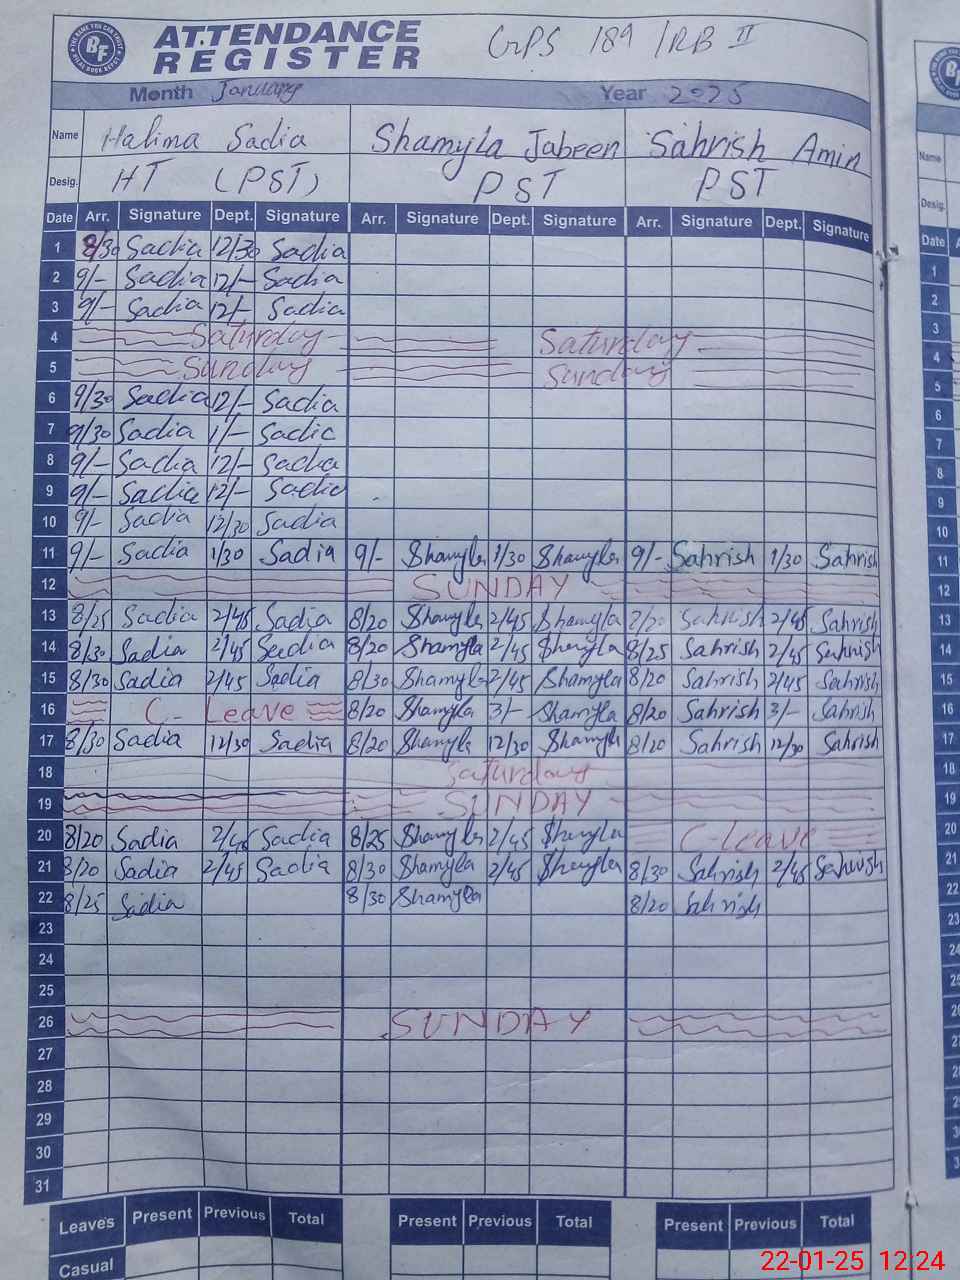 THE NAME YOU CAN TRUST
BF
BILAL BOOK DEPOT
ATTENDANCE REGISTER
GPS 189 /RB II
Month January Year 2025
Name Halima Sadia Shamyla Jabeen Sahrish Amin
Desig. HT (PST) PST PST
Date Arr. Signature Dept. Signature Arr. Signature Dept. Signature Arr. Signature Dept. Signature
1 8/30 Sadia 12/30 Sadia
2 9/- Sadia 12/- Sadia
3 9/- Sadia 12/- Sadia
4 Saturday Saturday
5 Sunday Sunday
6 9/30 Sadia 12/- Sadia
7 9/30 Sadia 1/- Sadia
8 9/- Sadia 12/- Sadia
9 9/- Sadia 12/- Sadia
10 9/- Sadia 12/30 Sadia
11 9/- Sadia 1/30 Sadia 9/- Shamyla 1/30 Shamyla 9/- Sahrish 1/30 Sahrish
12 SUNDAY
13 8/25 Sadia 2/45 Sadia 8/20 Shamyla 2/45 Shamyla 8/20 Sahrish 2/45 Sahrish
14 8/30 Sadia 2/45 Sadia 8/20 Shamyla 2/45 Shamyla 8/25 Sahrish 2/45 Sahrish
15 8/30 Sadia 2/45 Sadia 8/30 Shamyla 2/45 Shamyla 8/20 Sahrish 2/45 Sahrish
16 C- Leave 8/20 Shamyla 3/- Shamyla 8/20 Sahrish 3/- Sahrish
17 8/30 Sadia 12/30 Sadia 8/20 Shamyla 12/30 Shamyla 8/20 Sahrish 12/30 Sahrish
18 Saturday
19 SUNDAY
20 8/20 Sadia 2/45 Sadia 8/25 Shamyla 2/45 Shamyla C-leave
21 8/20 Sadia 2/45 Sadia 8/30 Shamyla 2/45 Shamyla 8/30 Sahrish 2/45 Sahrish
22 8/25 Sadia 8/30 Shamyla 8/20 Sahrish
23
24
25
26 SUNDAY
27
28
29
30
31
Leaves Present Previous Total Present Previous Total Present Previous Total
Casual
22-01-25 12:24